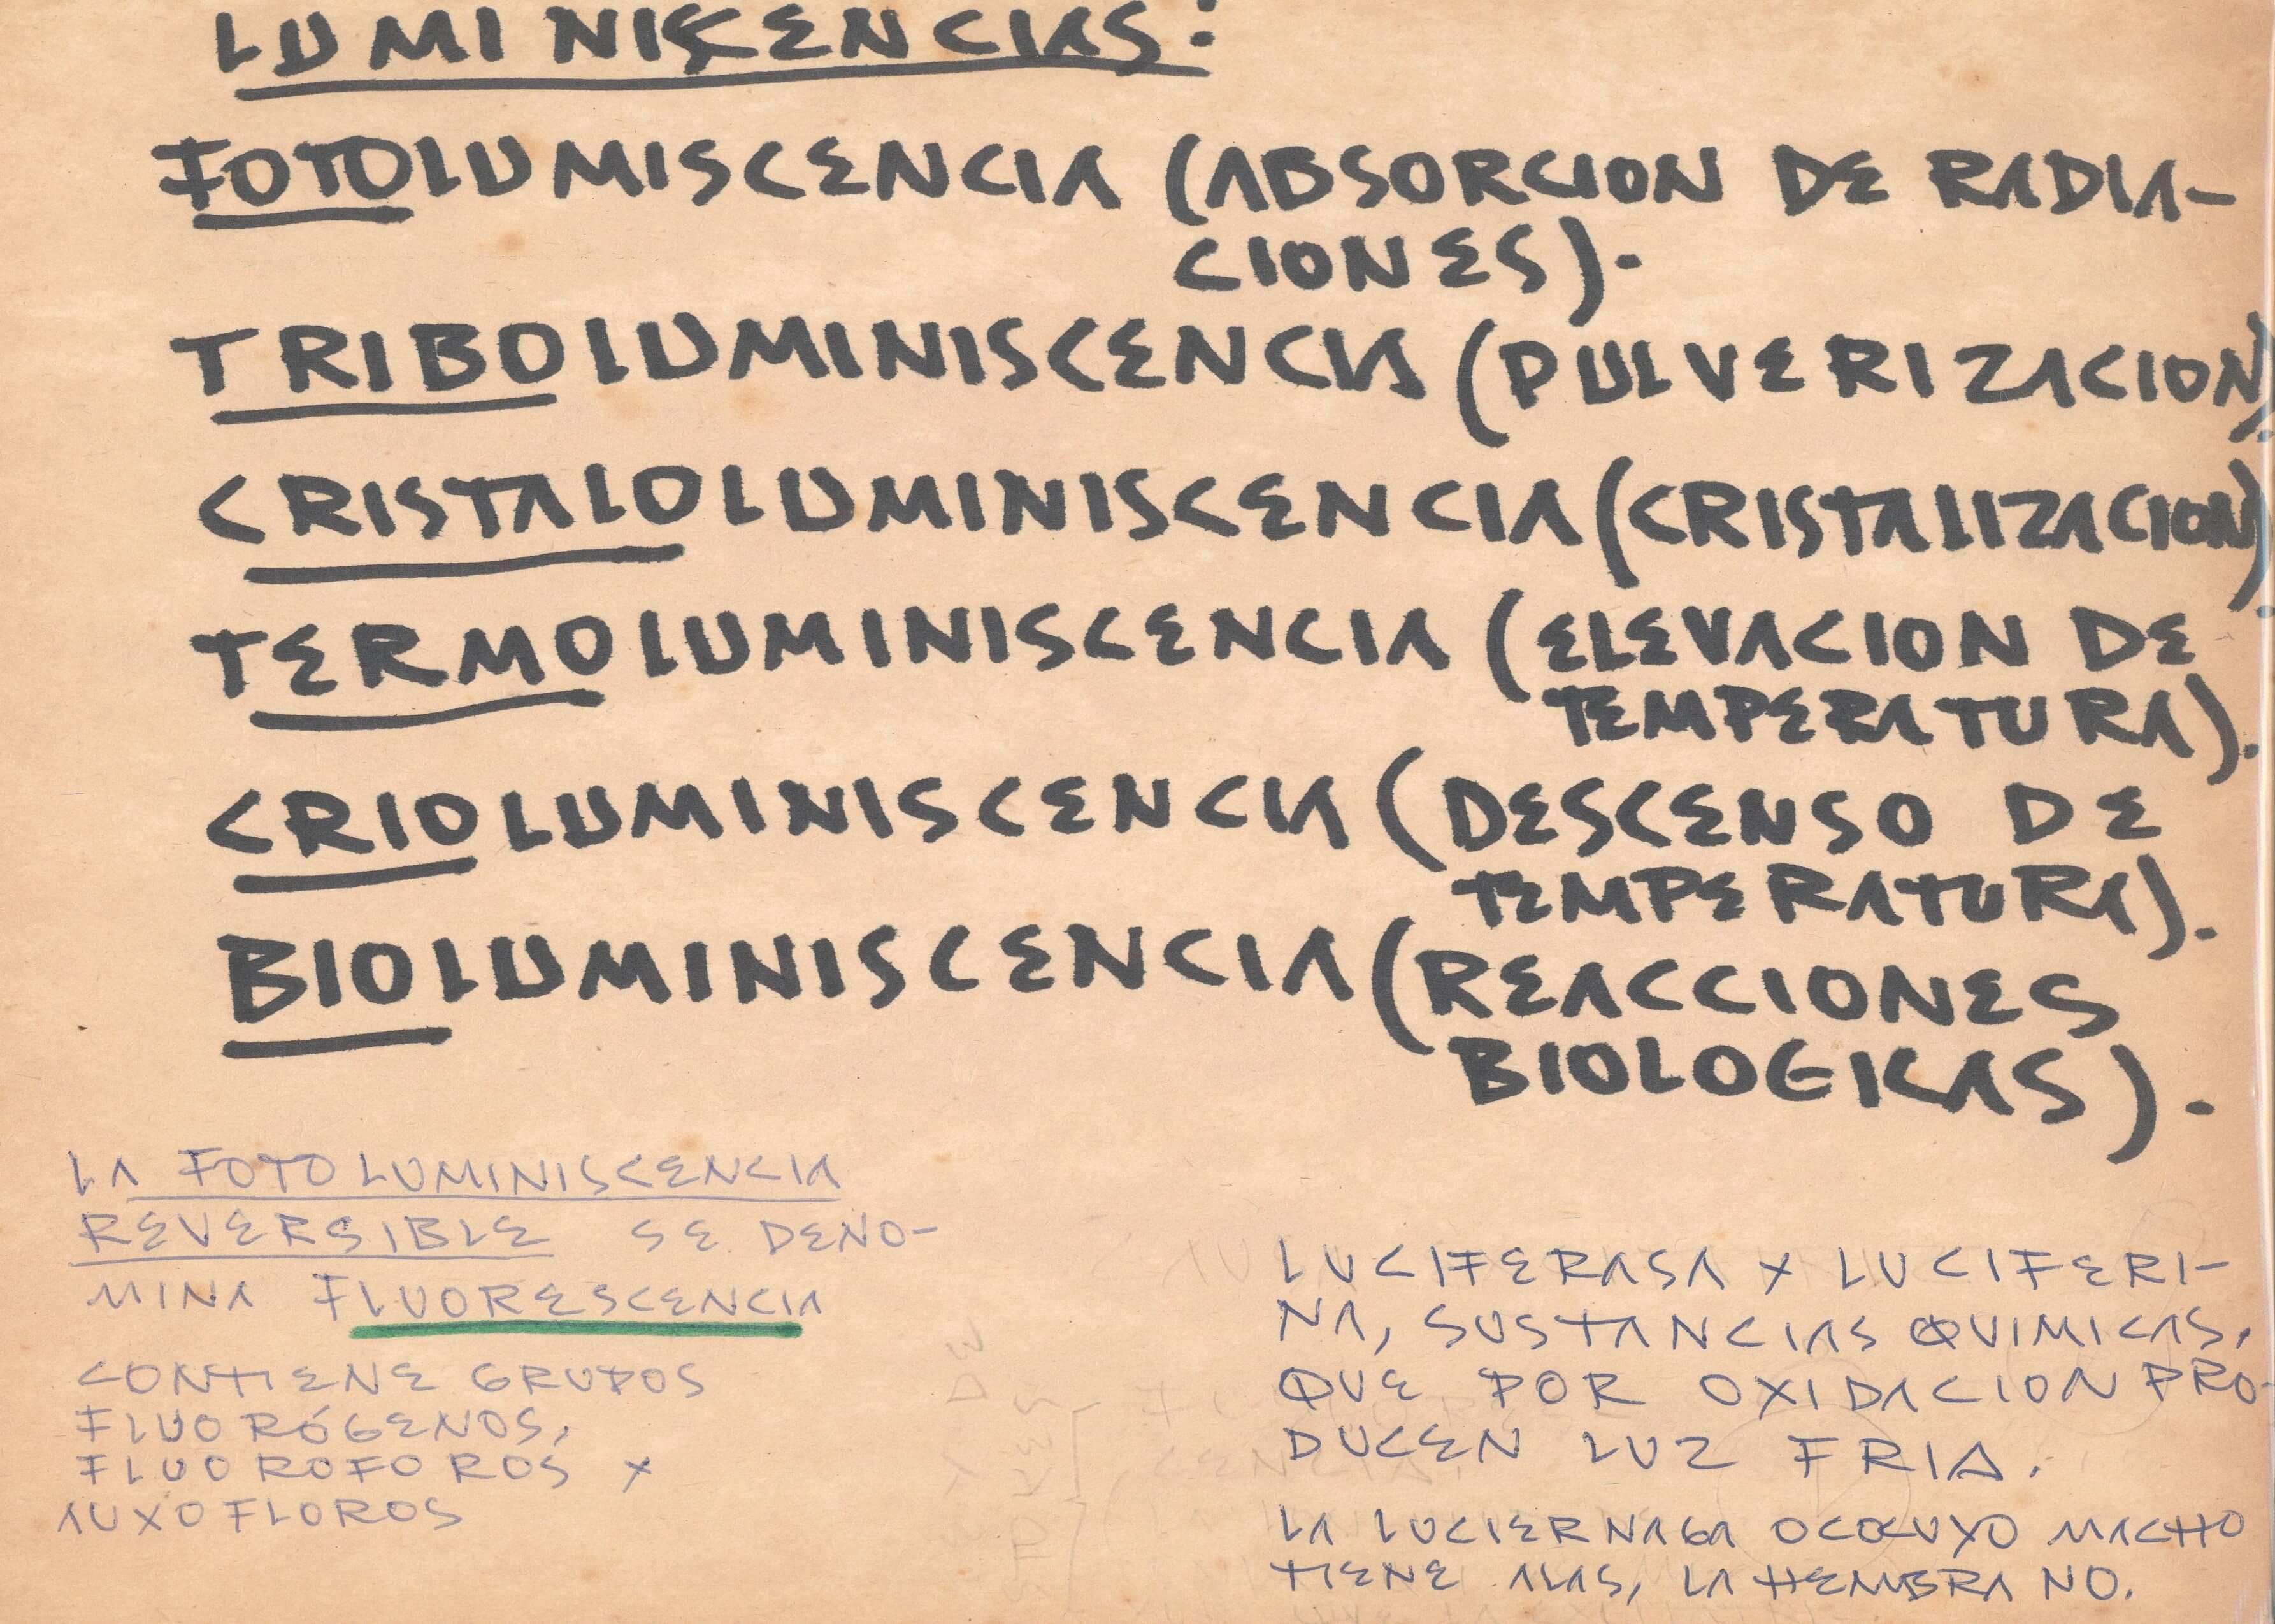 LUMINISCENCIAS:
FOTOLUMISCENCIA (ABSORCION DE RADIA-
CIONES).
TRIBOLUMINISCENCIA (PULVERIZACION).
CRISTALOLUMINISCENCIA (CRISTALIZACION).
TERMOLUMINISCENCIA (ELEVACION DE
TEMPERATURA).
CRIOLUMINISCENCIA (DESCENSO DE
TEMPERATURA).
BIOLUMINISCENCIA (REACCIONES
BIOLOGICAS).
LA FOTOLUMINISCENCIA
REVERSIBLE SE DENO-
MINA FLUORESCENCIA
CONTIENE GRUPOS
FLUORÓGENOS,
FLUOROFOROS Y
AUXOFLOROS
LUCIFERASA Y LUCIFERI-
NA, SUSTANCIAS QUIMICAS,
QUE POR OXIDACION PRO-
DUCEN LUZ FRIA.
LA LUCIERNAGA O COCUYO MACHO
TIENE ALAS, LA HEMBRA NO.